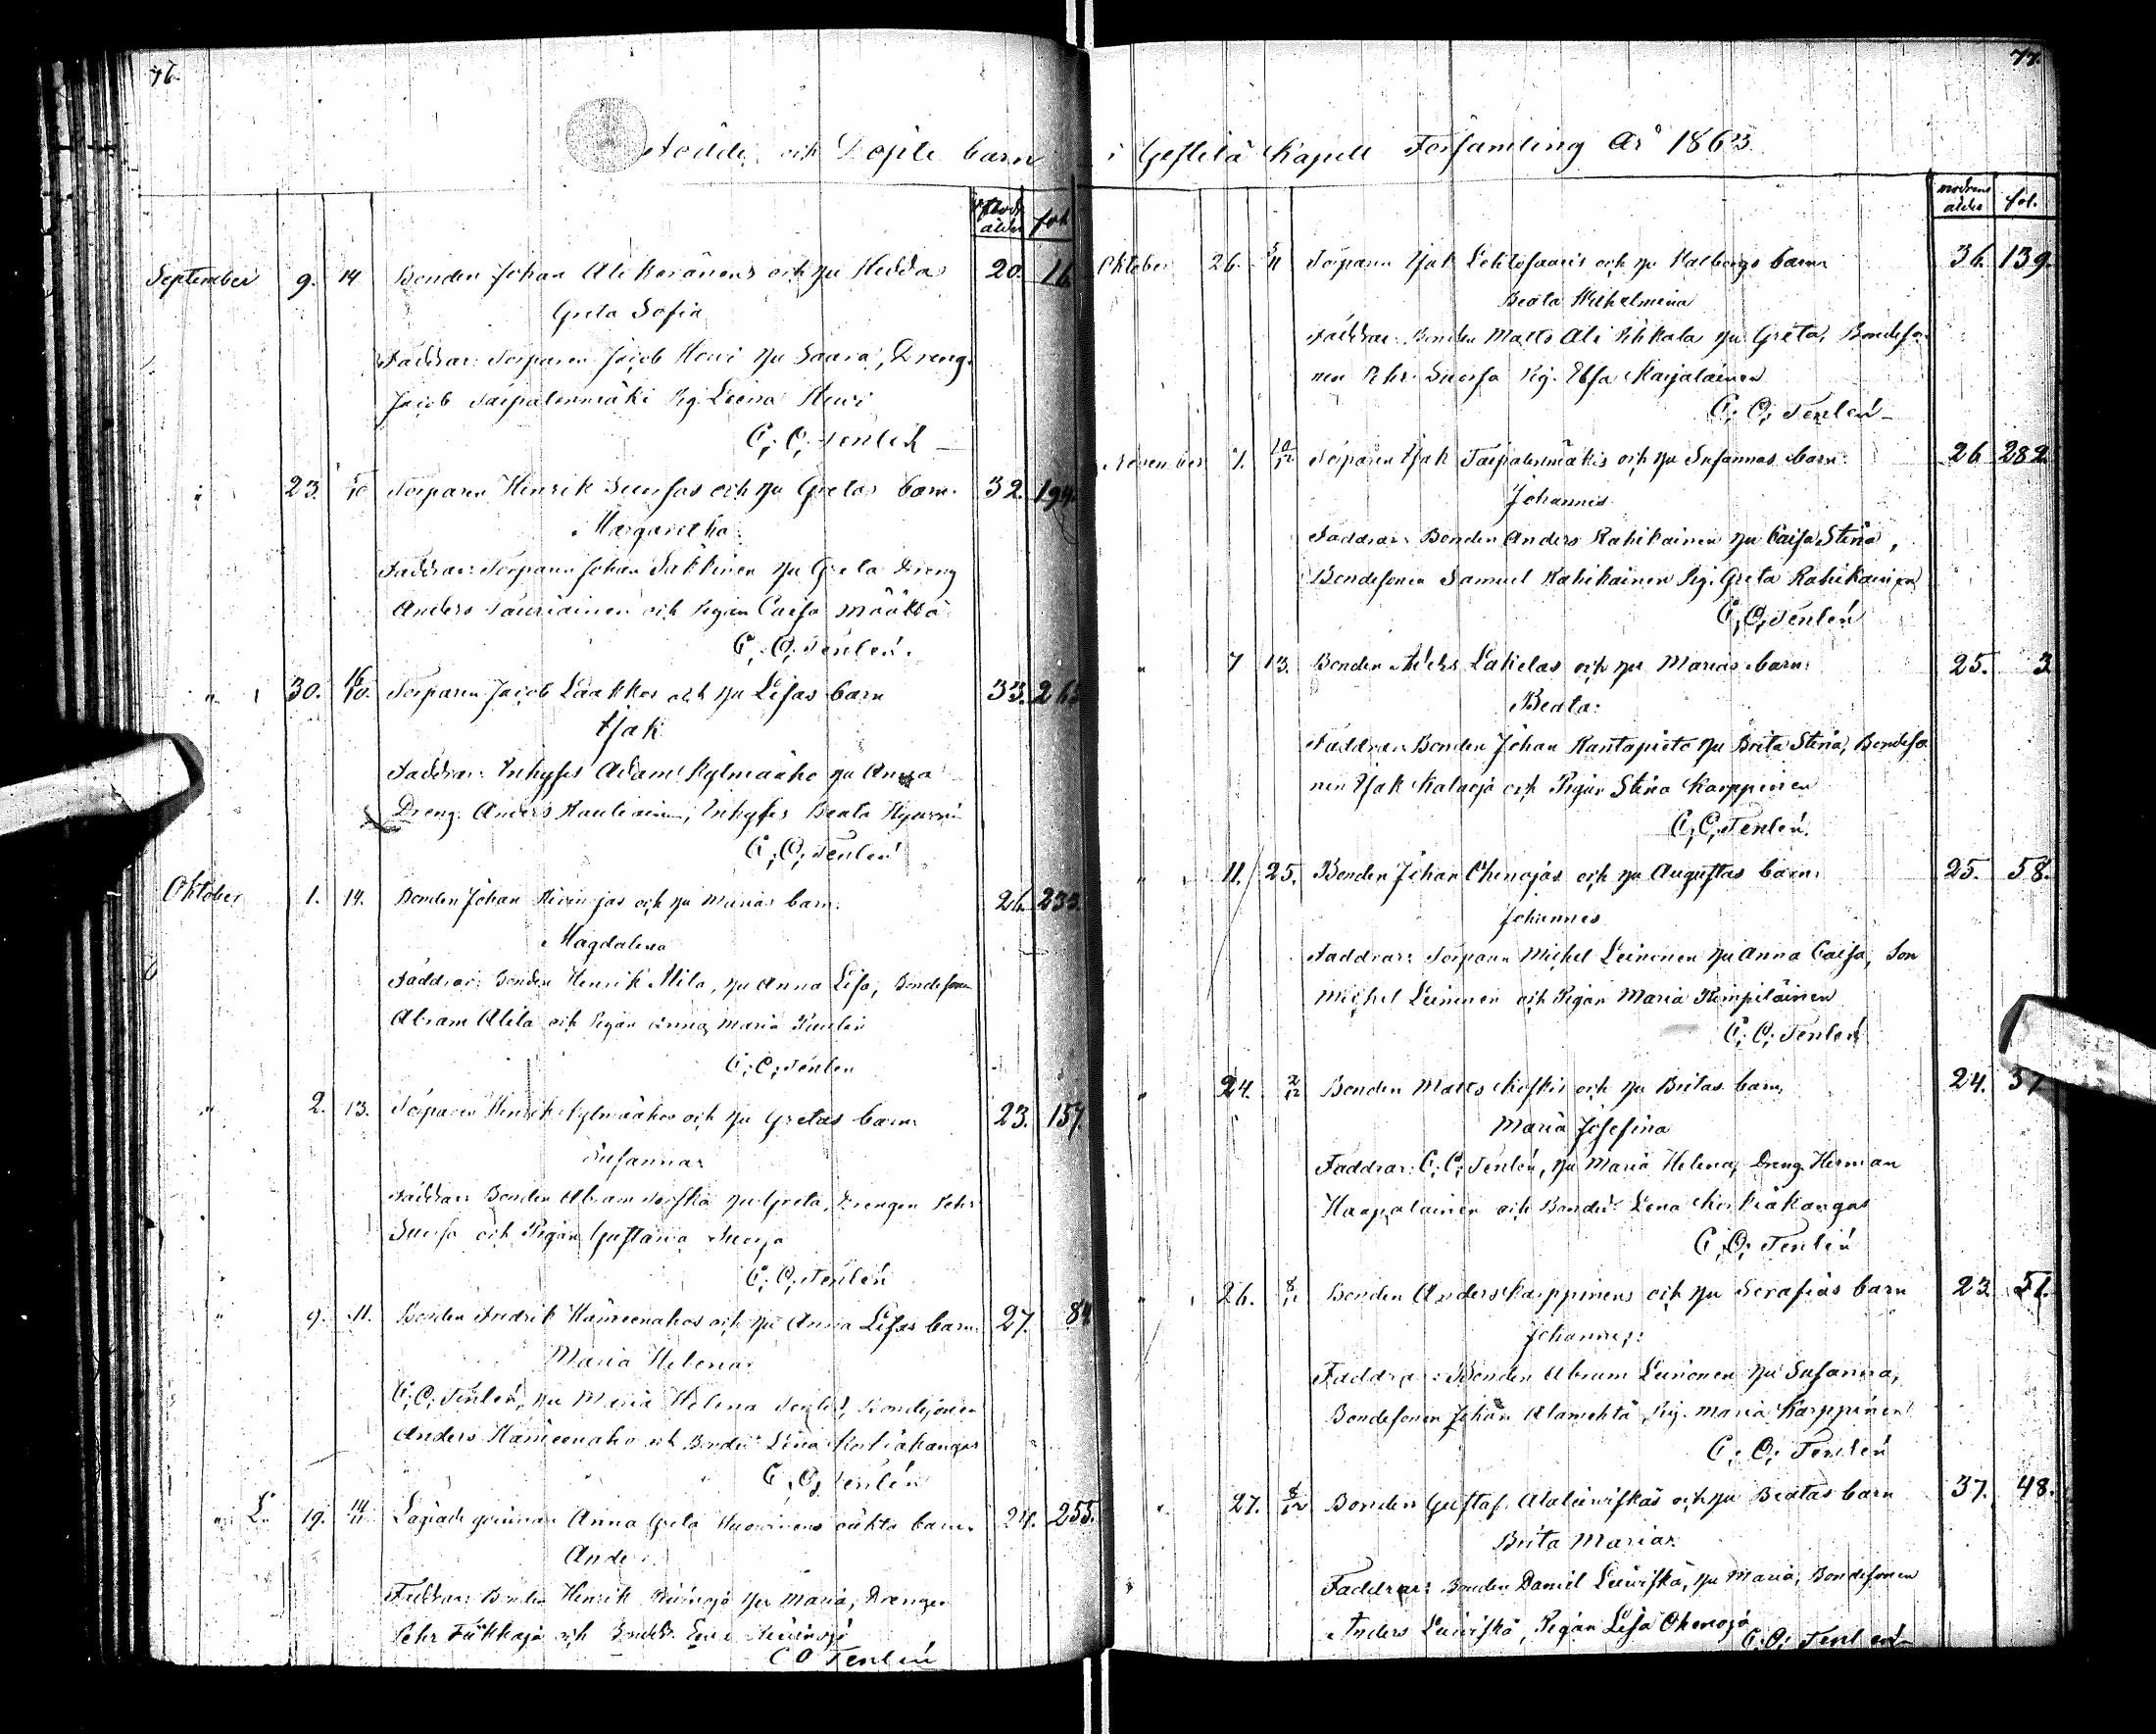 76.
Födde och Döpte barn
Modr. ålder fol.
September 9. 14 Bonden Johan Alikeränens och hu Heddas 20. 16
Greta Sofia
Faddrar: Torparen Jacob Hewi hu Saara, Dreng.
Jacob Taipalenmäki Pig. Leena Hewi
C. O. Tenlén
" 23. 5/10 Torparen Hinrik Suorsas och hu Gretas barn. 32. 194.
Margaretha
Faddrar: Torparen Johan Säkkinen hu Greta Dreng
Anders Tauriainen och Pigan Caisa Määttä
C. O. Tenlén.
" 30. 16/10. Torparen Jacob Laakkos och hu Lisas barn 33.
Isak
Faddrar: Inhyses Adam Kylmäaho hu Anna
Dreng. Anders Rautiainen, Inhyses Beata
C. O. Tenlén
Oktober 1. 14. Bonden Johan och hu Marias barn. 26. 233.
Magdalena
Faddrar: Bonden Henrik hu Anna Lisa, Bondesonen
Abram och Pigan Anna Maria
C. O. Tenlén
" 2. 13. Torparen Henrik Kylmäahos och hu Gretas barn. 23. 157.
Susanna
Faddrar: Bonden Abram hu Greta, Drengen Pehr
Suorsa och Pigan Gustava Suorsa
C. O. Tenlén
" 9. 11. Bonden Fredrik Hämeenahos och hu Anna Lisas barn. 27. 84
Maria Helena
C. O. Tenlén, hu Maria Helena Tenlén, Bondesonen
Anders Hämeenaho och Bonded. Lena Korkiakangas
C. O. Tenlén
" L. 19. 14/11 Lägrade qvinnan Anna Greta oäkta barn. 24. 255.
Faddrar: Bonden Henrik hu Maria, Drengen
Pehr och Bonded.
C O Tenlén
77.
i Kapell Församling År 1863.
modrens ålder fol.
Oktober 26. 5/11 Torparen Isak Lehtosaaris och hu Walborgs barn 36. 139.
Beata Wilhelmina
Faddrar: Bonden Matts Ali Pihkala hu Greta, Bondeso-
nen Pehr Suorsa Pig. Ebsa Karjalainen
C. O. Tenlén
November 7. Torparen Isak Taipalenmäkis och hu Susannas barn. 26 282.
Johannes
Faddrar: Bonden Anders Rahikainen hu Caisa Stina,
Bondesonen Samuel Rahikainen Pig. Greta Rahikainen
C. O. Tenlén
" 7 13. Bonden Lakelas och hu Marias barn: 25. 3
Beata:
Faddrar: Bonden Johan Rantapirto hu Brita Stina, Bondeso-
nen Isak och Pigan Stina Karppinen
C. O. Tenlén.
" 11. 25. Bonden Johan Ohenojas och hu Augustas barn. 25. 58.
Johannes
Faddrar: Torparen Michel Leinonen hu Anna Caisa, Son
Michel Leinonen och Pigan Maria Kemiläinen
C. O. Tenlén
" 24. 2/12 Bonden Matts Koskis och hu Britas barn. 24.
Maria Josefina
Faddrar: C. O. Tenlén, hu Maria Helena, Dreng. Herman
Haapalainen och Bonded. Lena Korkiakangas
C. O. Tenlén
" 26. Bonden Anders Karppinens och hu Serafias barn 23. 51.
Johannes:
Faddrar: Bonden Abram Leinonen hu Susanna,
Bondesonen Johan Alamehtä Pig. Maria Karppinen
C. O. Tenlén
" 27. Bonden Gustaf Alaleiviskäs och hu Beatas barn 37. 48.
Brita Maria
Faddrar: Bonden Daniel Leiviskä, hu Maria, Bondesonen
Anders Leiviskä, Pigan Lisa Ohenoja
C. O. Tenlén